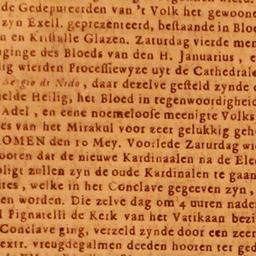 de Gedeputeerden van 't Volk het gewoone
zyn Exell. geprezenteerd, bestaande in Bloe
en Kristalle Glazen. Zaturdag vierde men
nginge des Bloeds van den H. Januarius, e
dig wierden Processiewyze uyt de Cathedrale
Nido, daar dezelve gesteld zynde
elde Heilig, het Bloed in tegenwoordighei
Adel, en eene noemeloose meenigte Volks
es van het Mirakul voor zeer gelukkig geho
ROMEN den 10 Mey. Voorlede Zaturdag wi
ooren dat de nieuwe Kardinaalen na de Elee
oligt zullen zyn de oude Kardinalen te gaan
ites, welke in het Conclave gegeeven zyn,
en worden. Die zelve dag om 4 uuren nade
l Pignatelli de Kerk van het Vatikaan bezi
Conclave ging, verzeld zynde door een zeer
extr. vreugdegalmen deeden hooren ter ged